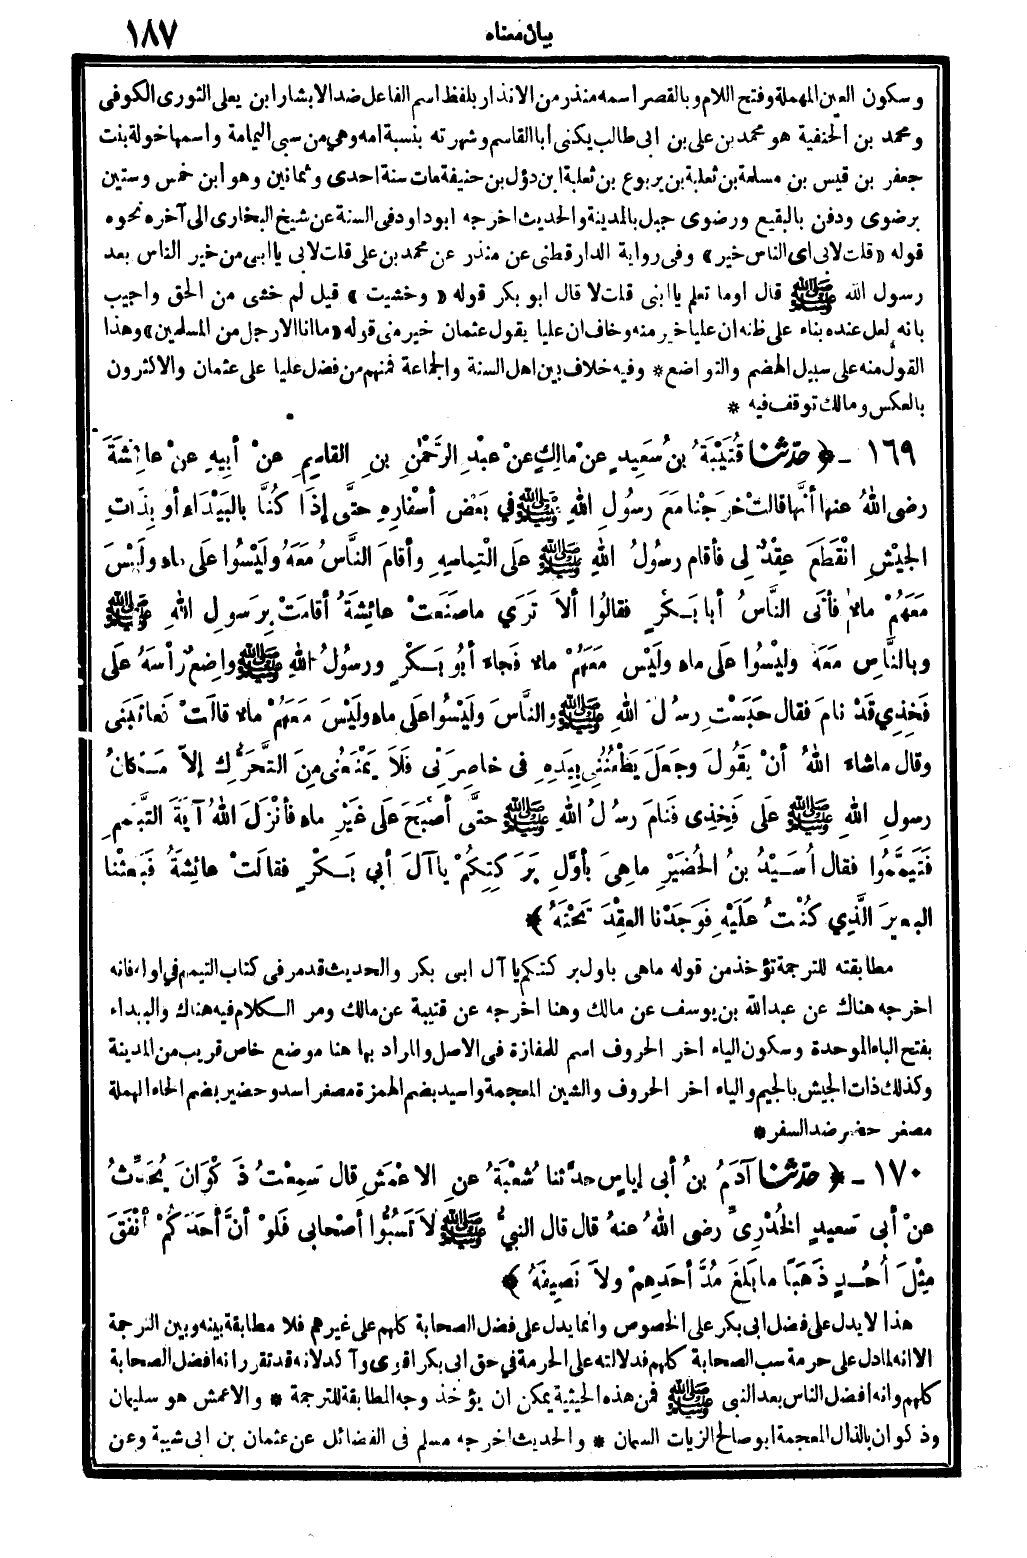 بيان معناه ١٨٧
وسكون العين المهملة وفتح اللام وبالقصر اسمه منذر من الانذار بلفظ اسم الفاعل ضد الابشار ابن يعلى الثورى الكوفى
ومحمد بن الحنفية هو محمد بن على بن ابى طالب يكنى ابا القاسم وشهرته بنسبة امه وهي من سبى اليمامة واسمها خولة بنت
جعفر بن قيس بن مسلمة بن ثعلبة بن يربوع بن ثعلبة ابن دؤل بن حنيفة مات سنة احدى وثمانين وهو ابن خمس وستين
برضوى ودفن بالبقيع ورضوى جبل بالمدينة والحديث اخرجه ابوداود فى السنة عن شيخ البخارى الى آخره نحوه
قوله «قلت لابى اى الناس خير» وفى رواية الدارقطنى عن منذر عن محمد بن على قلت لابى ياابى من خير الناس بعد
رسول الله ﷺ قال اوما تعلم ياابنى قلت لا قال ابو بكر قوله «وخشيت» قيل لم خشى من الحق واجيب
بانه لعل عنده بناء على ظنه ان عليا خير منه وخاف ان عليا يقول عثمان خير منى قوله «ما انا الا رجل من المسلمين» وهذا
القول منه على سبيل الهضم والتواضع * وفيه خلاف بين اهل السنة والجماعة فمنهم من فضل عليا على عثمان والاكثرون
بالعكس ومالك توقف فيه *
١٦٩ - ﴿ حدّثنا قُتَيْبَةُ بنُ سَعِيدٍ عنْ مالِكٍ عنْ عبْدِ الرَّحْمٰنِ بنِ القاسِمِ عنْ أبِيهِ عنْ عائِشَةَ
رضى اللهُ عنها أنَّها قالتْ خرَجْنا مَعَ رسولِ اللهِ ﷺ في بَعْضِ أسْفارِهِ حتَّى إذَا كُنَّا بالبَيْدَاءِ أو بِذَاتِ
الجيْشِ انْقَطَعَ عِقْدٌ لِى فأقام رسولُ اللهِ ﷺ علَى الْتِماسِهِ وأقامَ النَّاسُ مَعَهُ ولَيْسُوا علَى ماء ولَيْسَ
مَعَهُمْ مالا فأتَى النَّاسُ أبا بَكْرٍ فقالُوا ألاَ تَرَي ماصَنَعَتْ عائِشَةُ أقامَتْ بِرَسولِ اللهِ ﷺ
وبالنَّاسِ مَعَهُ وليْسُوا علَى ماء ولَيْس مَعَهُمْ مالا فَجاءَ أبُو بَكْرٍ ورسُولُ اللهِ ﷺ واضِعٌ رأسَهُ علَى
فَخِذِي قَدْ نامَ فقال حبَسْتِ رسُولَ اللهِ ﷺ والنَّاسَ ولَيْسُوا علَى ماء ولَيْسَ مَعَهُمْ مالا قالَتْ فَعاتَبَنى
وقال ماشاءَ اللهُ أنْ يَقُولَ وجَعَلَ يَطْعُنُنى بِيَدِهِ فى خاصِرَتِى فَلَا يَمْنَعُنى مِنَ التَّحَرُّكِ إلاّ مَكانُ
رسولِ اللهِ ﷺ علَى فَخِذِى فَنامَ رسُولُ اللهِ ﷺ حتَّى أصْبَحَ علَى غَيْرِ ماء فأنْزَلَ اللهُ آيَةَ التَّيَمُّمِ
فَتَيَمَّمُوا فقال أُسَيْدُ بنُ الحُضَيْرِ ماهِيَ بأوَّلِ بَرَكَتِكُمْ ياآلَ أبي بَكْرٍ فقالَتْ عائِشَةُ فَبعثْنا
البعيرَ الَّذِي كُنْتُ علَيْهِ فَوَجَدْنا العِقْدَ تَحْتَهُ ﴾
مطابقته للترجمة تؤخذ من قوله ماهى باول بركتكم ياآل ابى بكر والحديث قد مر فى كتاب التيمم في اوله فانه
اخرجه هناك عن عبدالله بن يوسف عن مالك وهنا اخرجه عن قتيبة عن مالك ومر الكلام فيه هناك والبيداء
بفتح الباء الموحدة وسكون الياء اخر الحروف اسم للمفازة فى الاصل والمراد بها هنا موضع خاص قريب من المدينة
وكذلك ذات الجيش بالجيم والياء اخر الحروف والشين المعجمة واسيد بضم الهمزة مصغر اسد وحضير بضم الحاء المهملة
مصغر حضر ضد السفر *
١٧٠ - ﴿ حدّثنا آدَمُ بنُ أبى إياسٍ حدَّثنا شُعْبَةُ عنِ الاعْمَشِ قال سَمِعْتُ ذَكْوَانَ يُحَدِّثُ
عنْ أبى سَعيدٍ الخُدْرِىِّ رضى اللهُ عنهُ قال قال النبيُّ ﷺ لاَ تَسُبُّوا أصْحابى فَلوْ أنَّ أحَدَكُمْ أنْفَقَ
مِثْلَ أُحُدٍ ذَهَبًا ما بَلغَ مُدَّ أحَدِهِمْ ولاَ نَصِيفَهُ ﴾
هذا لايدل على فضل ابى بكر على الخصوص وانما يدل على فضل الصحابة كلهم على غيرهم فلا مطابقة بينه وبين الترجمة
الا انه لما دل على حرمة سب الصحابة كلهم فدلالته على الحرمة في حق ابى بكر اقوى وآكد لانه قد تقرر انه افضل الصحابة
كلهم وانه افضل الناس بعد النبى ﷺ فمن هذه الحيثية يمكن ان يؤخذ وجه المطابقة للترجمة * والاعمش هو سليمان
وذكوان بالذال المعجمة ابوصالح الزيات السمان * والحديث اخرجه مسلم فى الفضائل عن عثمان بن ابى شيبة وعن